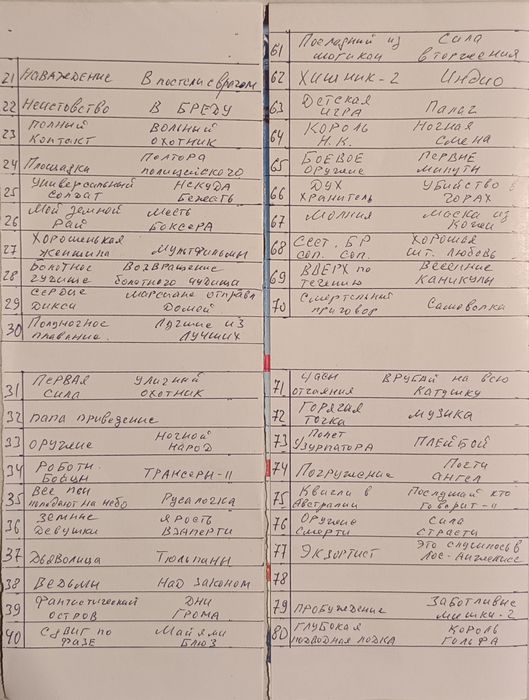 21 Наваждение В постели с врагом
22 Неистовство В БРЕДУ
23 Полный Вольный
Контакт охотник
24 Площадка Полтора
полицейского
25 Универсальный Некуда
солдат Бежать
26 Мой земной Месть
Рай Боксера
27 Хорошенькая
женщина Мультфильмы
28 Болотное Возвращение
чудище болотного чудища
29 Сердце Марсиане отправл
Дикси Домой
30 Полуночное Лучшие из
плавание. Лучших
31 Первая Уличный
Сила охотник
32 Папа привидение
33 Оружие Ночной
народ
34 Роботы- Трансеры-II
Бойцы
35 Все псы
попадают на небо Русалочка
36 Земные Ярость
Девушки Взаперти
37 Дьяволица Тюльпаны
38 Ведьмы Над законом
39 Фантастический Дни
остров Грома
40 Сдвиг по Майами
фазе Блюз
61 Последний из Сила
могикан вторжения
62 Хищник-2 Индио
63 Детская Палач
игра
64 Король Ночная
Н.К. Смена
65 Боевое Первые
оружие минуты
66 Дух Убийство в
хранитель горах
67 Молния Маска из
Кожи
68 Сест. БР Хорошья
соп. соп. шт. любовь
69 Вверх по Весенние
течению Каникулы
70 Смертельный
приговор Самоволка
71 Часы Врубай на всю
отчаяния Катушку
72 Горячая музыка
точка
73 Полет Плейбой
Узурпатора
74 Погружение Почти
ангел
75 Квигли в Послушай кто
Австралии говорит-II
76 Оружие Сила
Смерти страсти
77 Экзортист Это случилось в
Лос-Анжелесе
78
79 Пробуждение Заботливые
мишки-2
80 Глубокая Король
подводная лодка Гольфа